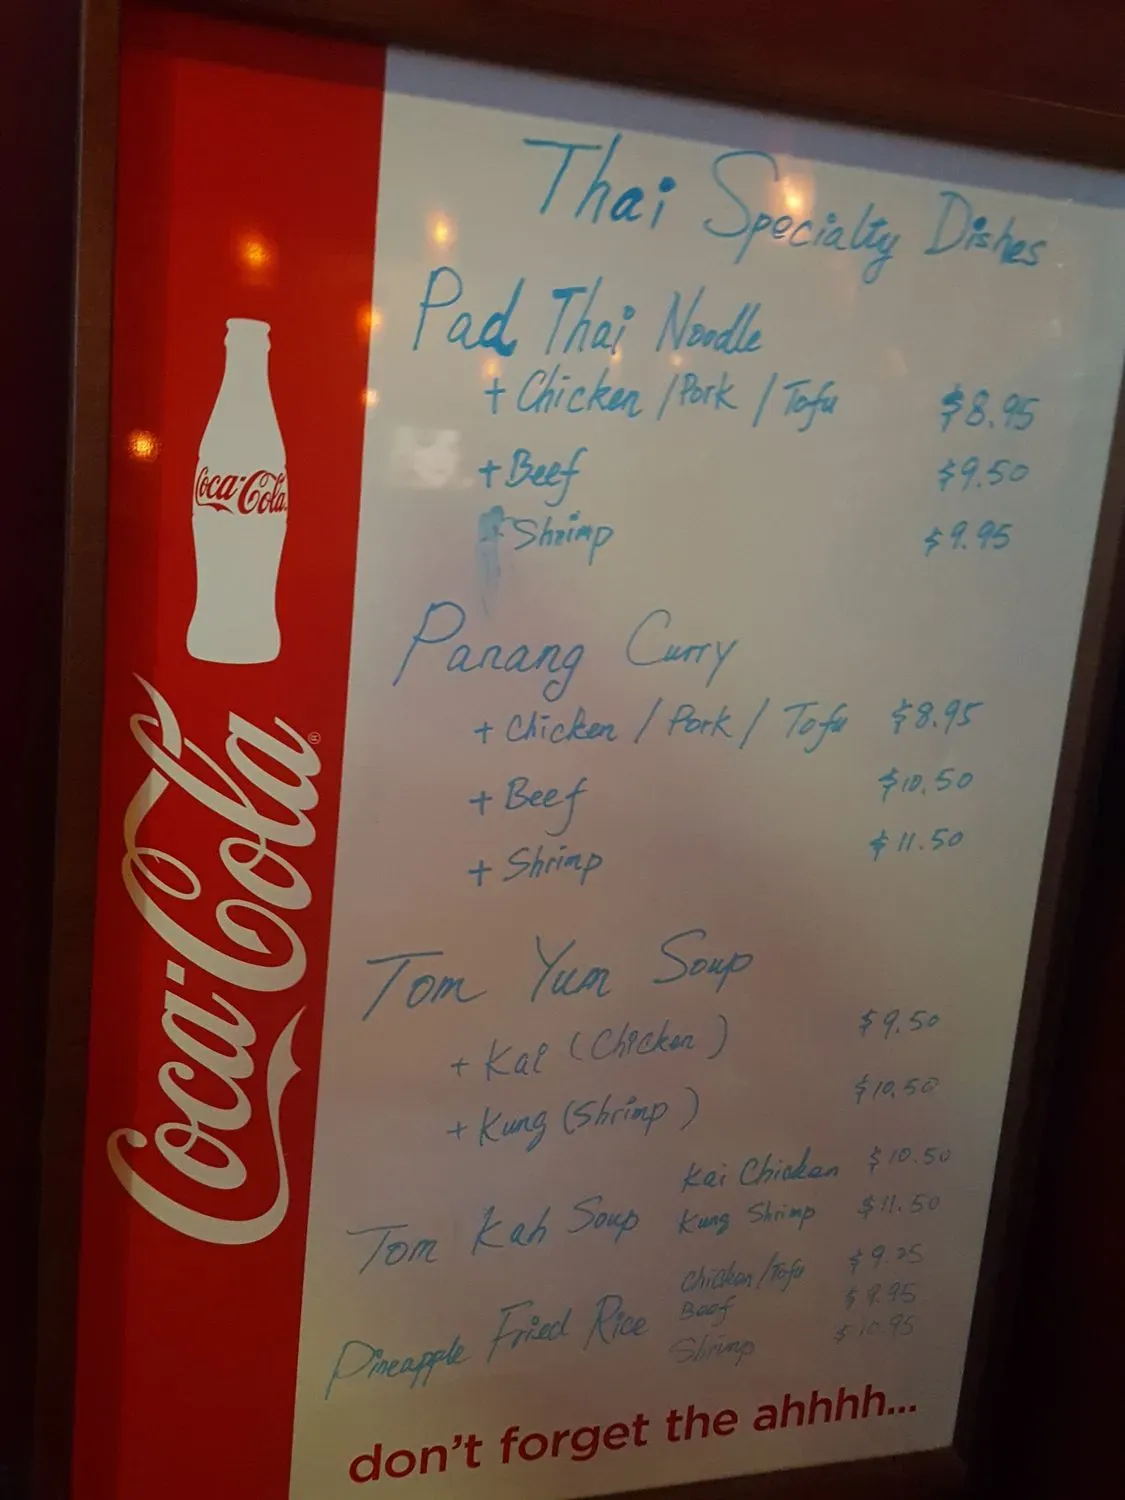 Thai Specialty Dishes
Pad Thai Noodle
+ Chicken / Pork / Tofu $8.95
+ Beef $9.50
+ Shrimp $9.95
Panang Curry
+ Chicken / Pork / Tofu $8.95
+ Beef $10.50
+ Shrimp $11.50
Tom Yum Soup
+ Kai (Chicken) $9.50
+ Kung (Shrimp) $10.50
Tom Kah Soup
Kai Chicken $10.50
Kung Shrimp $11.50
Pineapple Fried Rice
Chicken/Tofu $9.25
Beef $9.95
Shrimp $10.95
don't forget the ahhhh...
Coca-Cola
Coca-Cola®